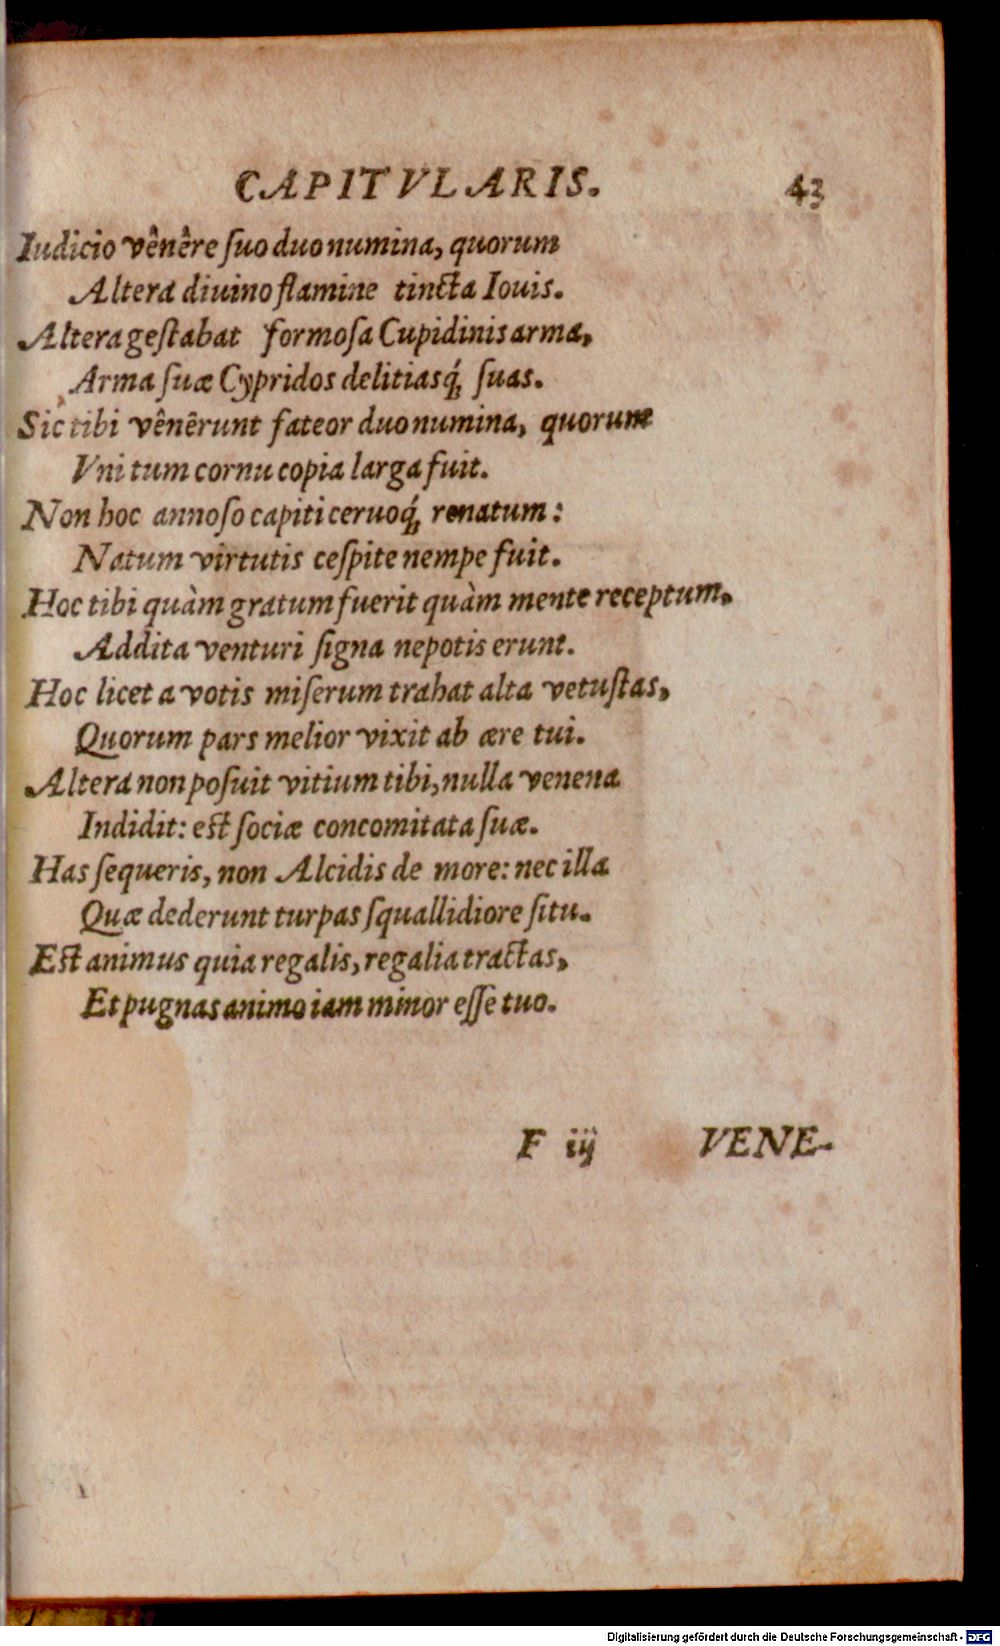 CAPITVLARIS. 43
Iudicio vênêre ſuo duo numina, quorum
Altera diuino flamine tincta Iouis.
Altera geſtabat formoſa Cupidinis arma,
Arma ſuæ Cypridos delitiasq́; ſuas.
Sic tibi vênêrunt fateor duo numina, quorum
Vni tum cornu copia larga fuit.
Non hoc annoſo capiti ceruoq́; renatum:
Natum virtutis ceſpite nempe fuit.
Hoc tibi quàm gratum fuerit quàm mente receptum,
Addita venturi ſigna nepotis erunt.
Hoc licet a votis miſerum trahat alta vetuſtas,
Quorum pars melior vixit ab ære tui.
Altera non poſuit vitium tibi, nulla venena
Indidit: eſt ſociæ concomitata ſuæ.
Has ſequeris, non Alcidis de more: nec illa
Quæ dederunt turpas ſquallidiore ſitu.
Eſt animus quia regalis, regalia tractas,
Et pugnas animo iam minor eſſe tuo.
F iij VENE-
Digitalisierung gefördert durch die Deutsche Forschungsgemeinschaft - DFG